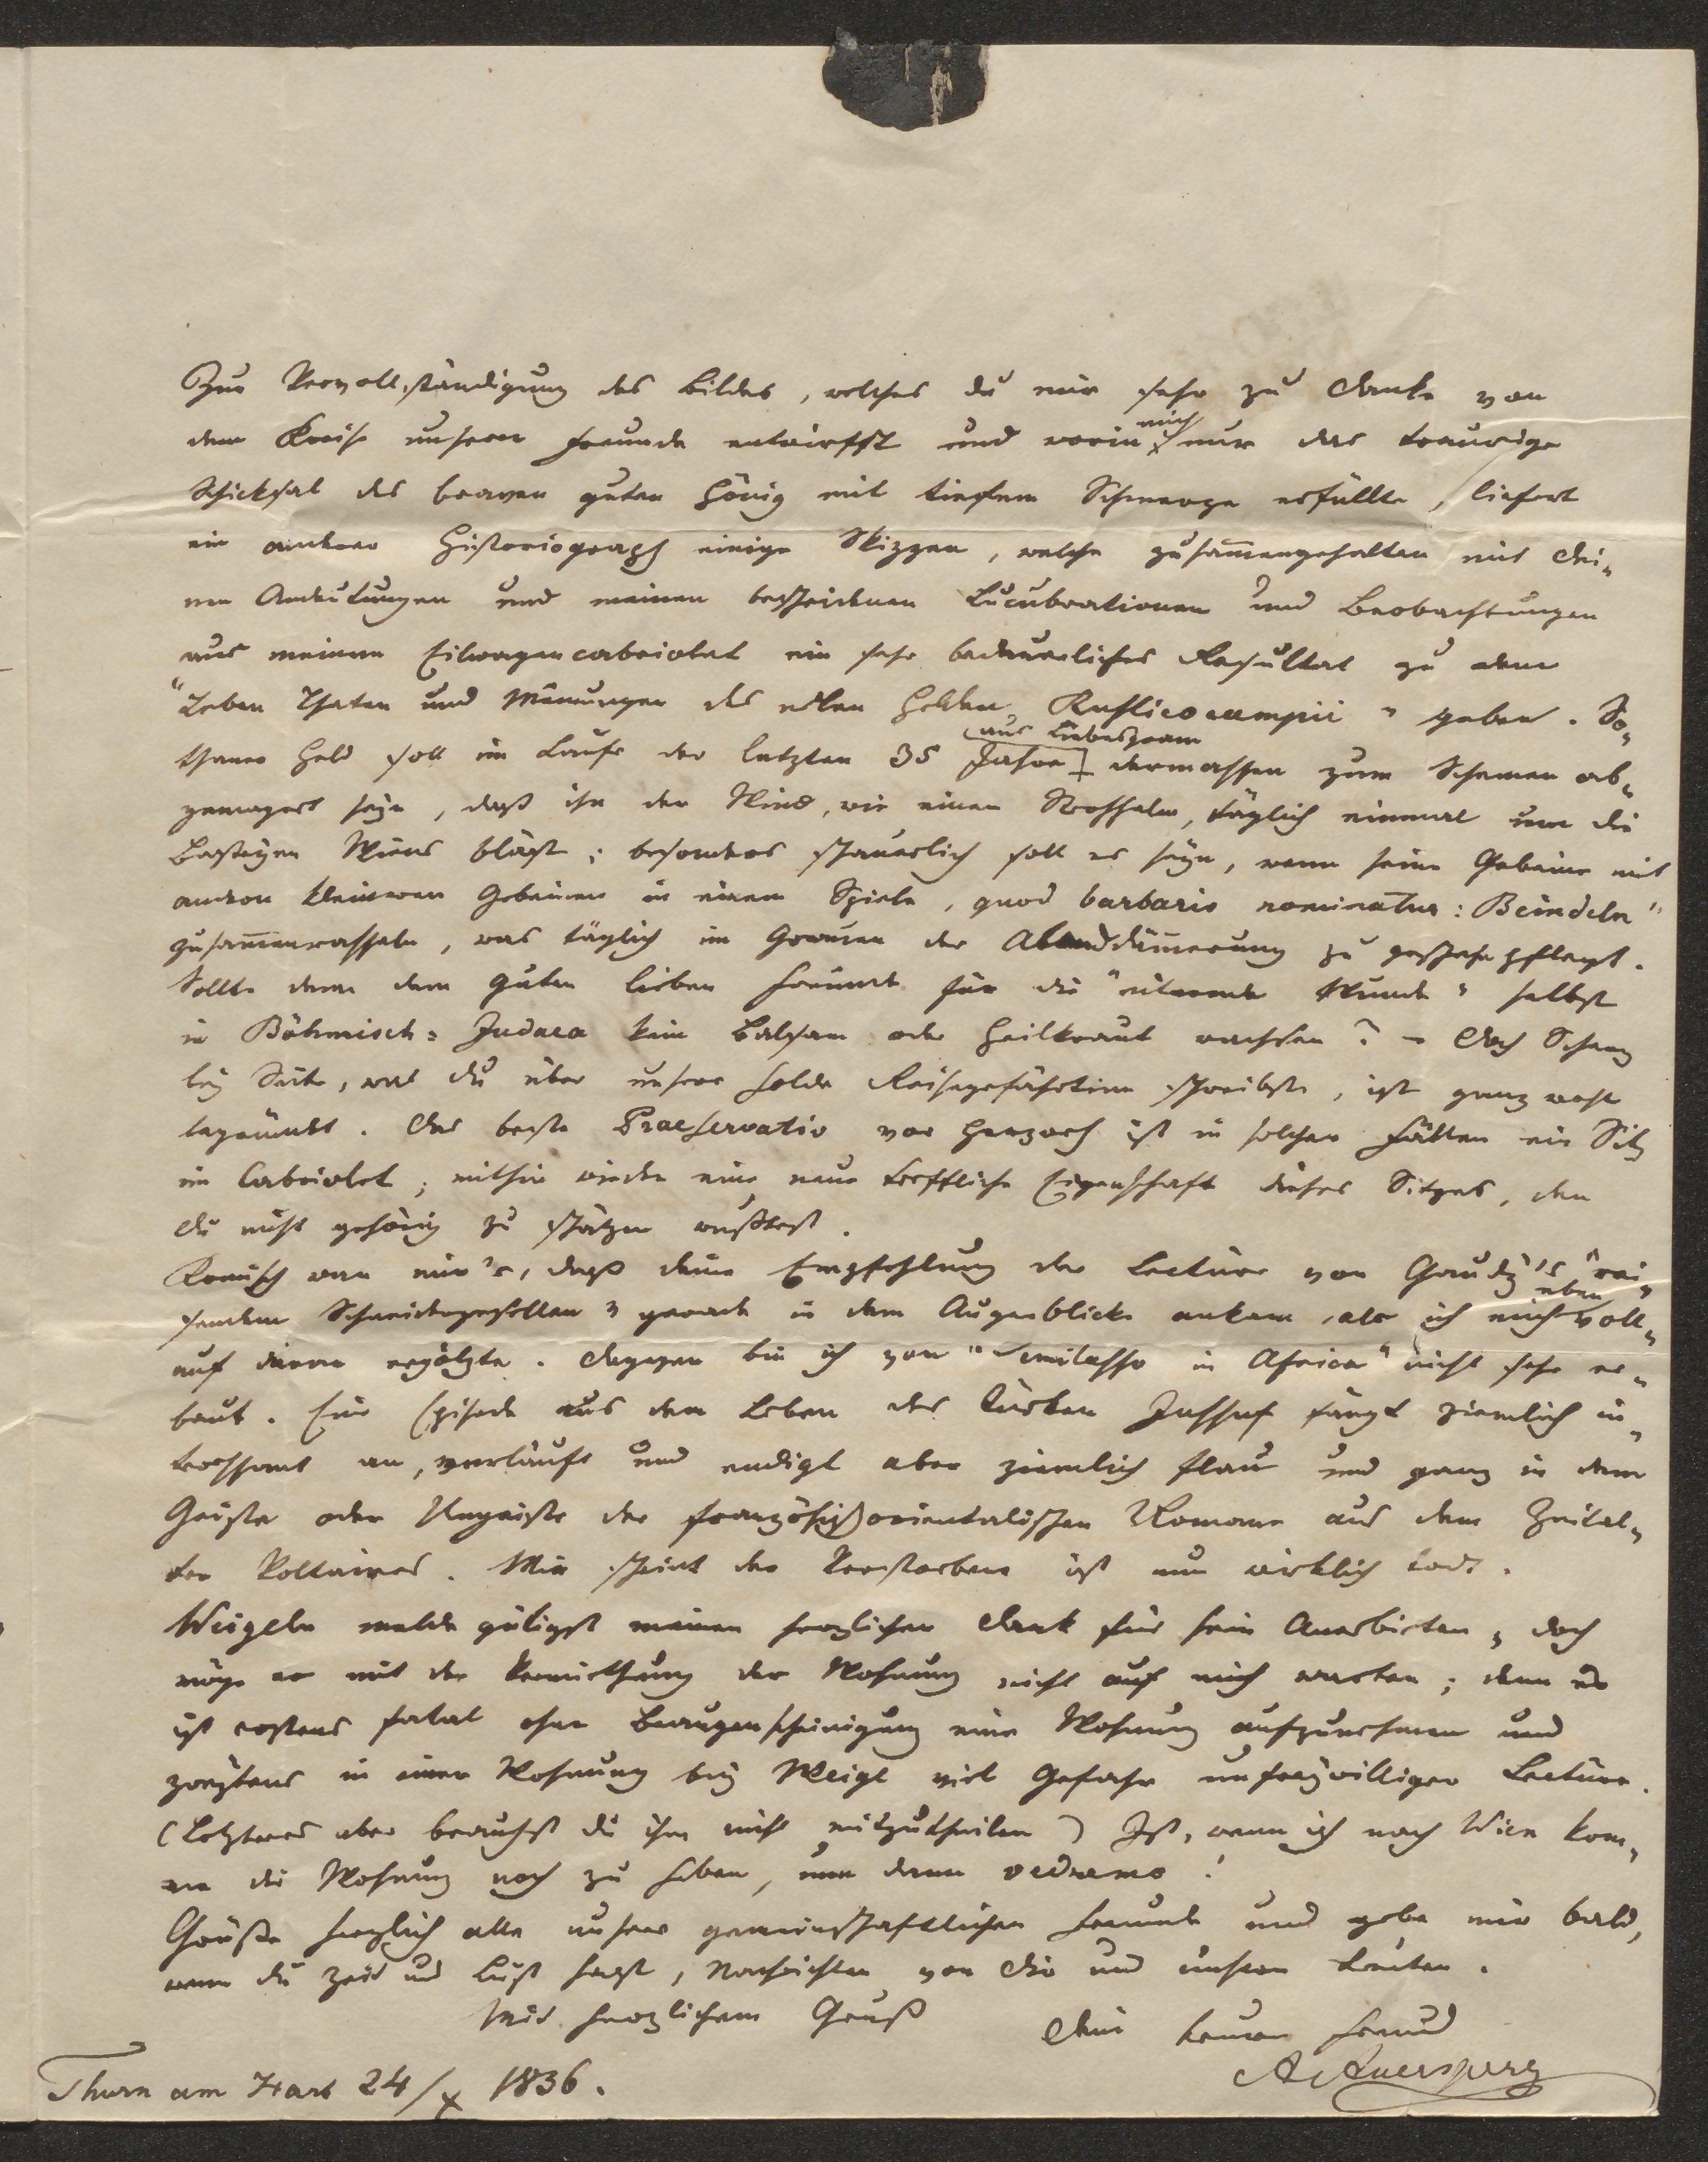 Zur Vervollständigung des Bildes, welches du mir sehr zu Danke von
dem Kreise unserer Freunde entwirfst und worin mich nur das traurige
Schicksal des braven guten Hönig mit tiefem Schmerze erfüllte, liefert
ein andrer Historiograph einige Skizzen, welche zusam̄engehalten mit dei-
nen Andeutungen und meinen bescheidenen Lucubrationen und Beobachtungen
aus meinem Eilwagencabriolet ein sehr bedauerliches Resultat zu dem
"Leben Thaten und Meinungen des edlen Helden Rusticocampii" geben. So-
thaner Held soll im Laufe der letzten 35 Jahre aus Liebesgram dermassen zum Schemen ab-
gemagert seyn, daß ihn der Wind, wie einen Strohhalm, täglich einmal um die
Basteyen Wiens bläst; besonders schauerlich soll es seyn, wenn seine Gebeine mit
andern kleineren Gebeinen in einem Spiele, quod barbaris nominatur: Beindeln"
zusam̄enrasseln, was täglich im Grauen der Abenddäm̄erung zu geschehn pflegt.
Sollte denn dem guten lieben Freunde für die "eiternde Wunde" selbst
in Böhmisch-Judaea kein Balsam oder Heilkraut wachsen? – Doch Scherz
bey Seite, was du über unsere holde Reisegefährtinn schreibst, ist ganz wohl
begründet. Das beste Praeservativ vor Herzweh ist in solchen Fällen ein Sitz
im Cabriolet; mithin wieder eine neue treffliche Eigenschaft dieses Sitzes, den
du nicht gehörig zu schätzen wußtest.
Komisch war mir's, daß deine Empfehlung der Lectüre von Gaudy's "rei-
senden Schneidergesellen" gerade in dem Augenblicke ankam, als ich mich eben voll-
auf daran ergötzte. Dagegen bin ich von "Semilasso in Africa" nicht sehr er-
baut. Eine Episode aus dem Leben des Türken Jussuf fängt ziemlich in-
teressant an, verläuft und endigt aber ziemlich flau und ganz in dem
Geiste oder Ungeiste der französischorientalischen Romane aus dem Zeital-
ter Voltaires. Mir scheint der Verstorbene ist nun wirklich todt.
Weigeln melde gütigst meinen herzlichen Dank für sein Anerbieten, doch
möge er mit der Vermiethung der Wohnung nicht auf mich warten; denn es
ist erstens fatal ohne Beaugenscheinigung eine Wohnung aufzunehmen und
zweytens in einer Wohnung bey Weigl viel Gefahr unfreywilliger Lectüre.
(Letzteres aber brauchst du ihm nicht mitzutheilen) Ist, wenn ich nach Wien kom-
me die Wohnung noch zu haben, nun dann vedremo!
Grüße herzlich alle unsere gemeinschaftlichen Freunde und gebe mir bald,
wenn du Zeit und Lust hast, Nachrichten von dir und unsern Leuten.
Mit herzlichem Gruß
Dein treuer Freund
AAuersperg
Thurn am Hart 24/X 1836.